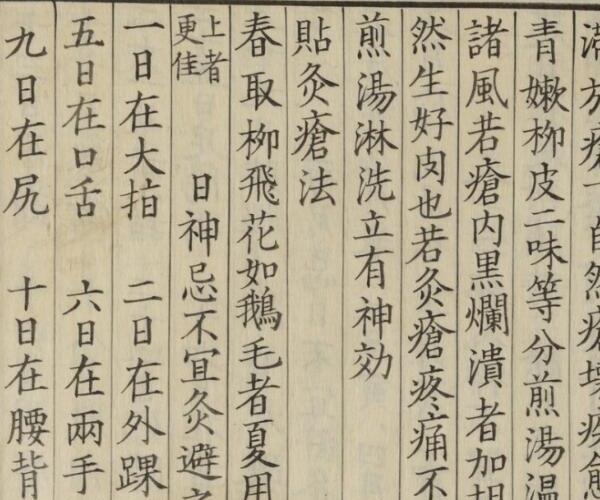 滞於瘡下自然瘡壞疾愈
青嫰栁皮二味等分煎湯温
諸風若瘡内黒爛潰者加胡
然生好肉也若灸瘡疼痛不
煎湯淋洗立有神効
貼灸瘡法
春取栁飛花如鵝毛者夏用
上者更佳
日神忌不冝灸避之
一日在大指 二日在外踝
五日在口舌 六日在兩手
九日在尻 十日在腰背